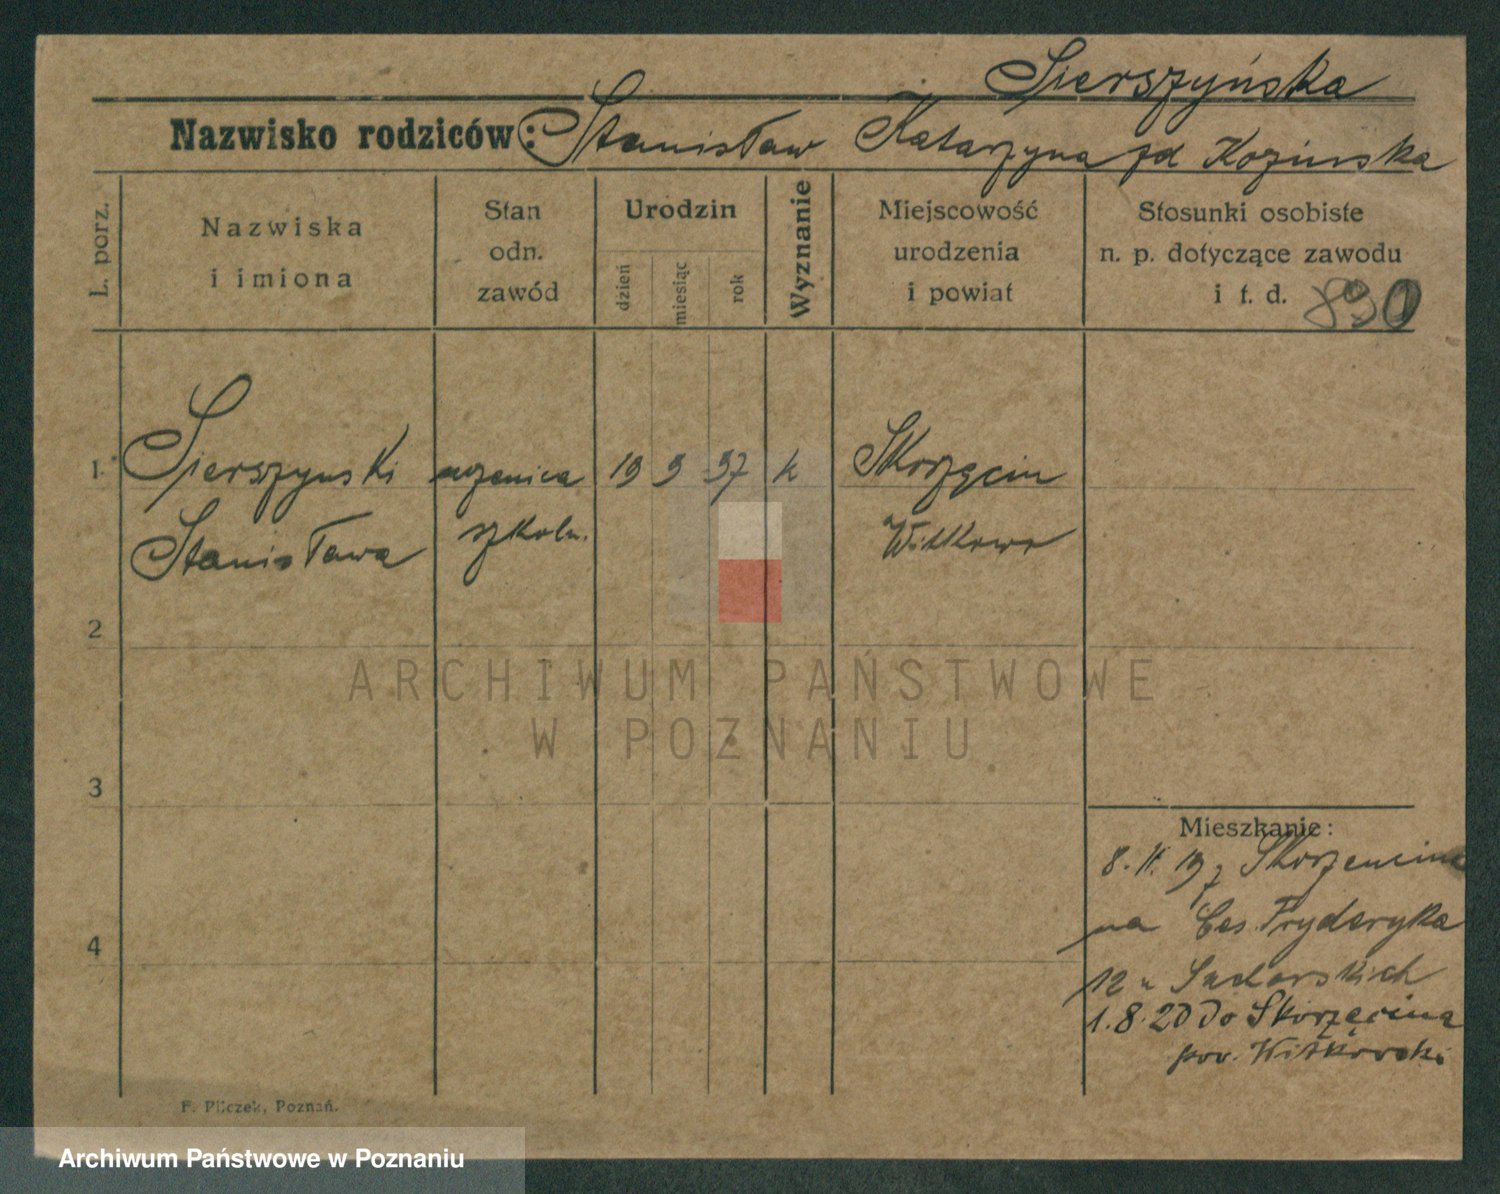 Sierszyńska
Nazwisko rodziców: Stanisław Katarzyna zd Kozinska
L. porz.
Nazwiska
i imiona
Stan
odn.
zawód
Urodzin
dzień
miesiąc
rok
Wyznanie
Miejscowość
urodzenia
i powiat
Stosunki osobiste
n. p. dotyczące zawodu
i t. d. 890
1 Sierszynski uczenica 19 9 97 k Skorzęcin
Stanisława szkoln. Witkowo
2
3
4
ARCHIWUM PAŃSTWOWE
W POZNANIU
Mieszkanie:
8.11.19 z Skorzencina
na Ces. Fryderyka
12 u
1.8.20 do Skorzęcina
pow. Witkowski
F. Pilczek, Poznań.
Archiwum Państwowe w Poznaniu